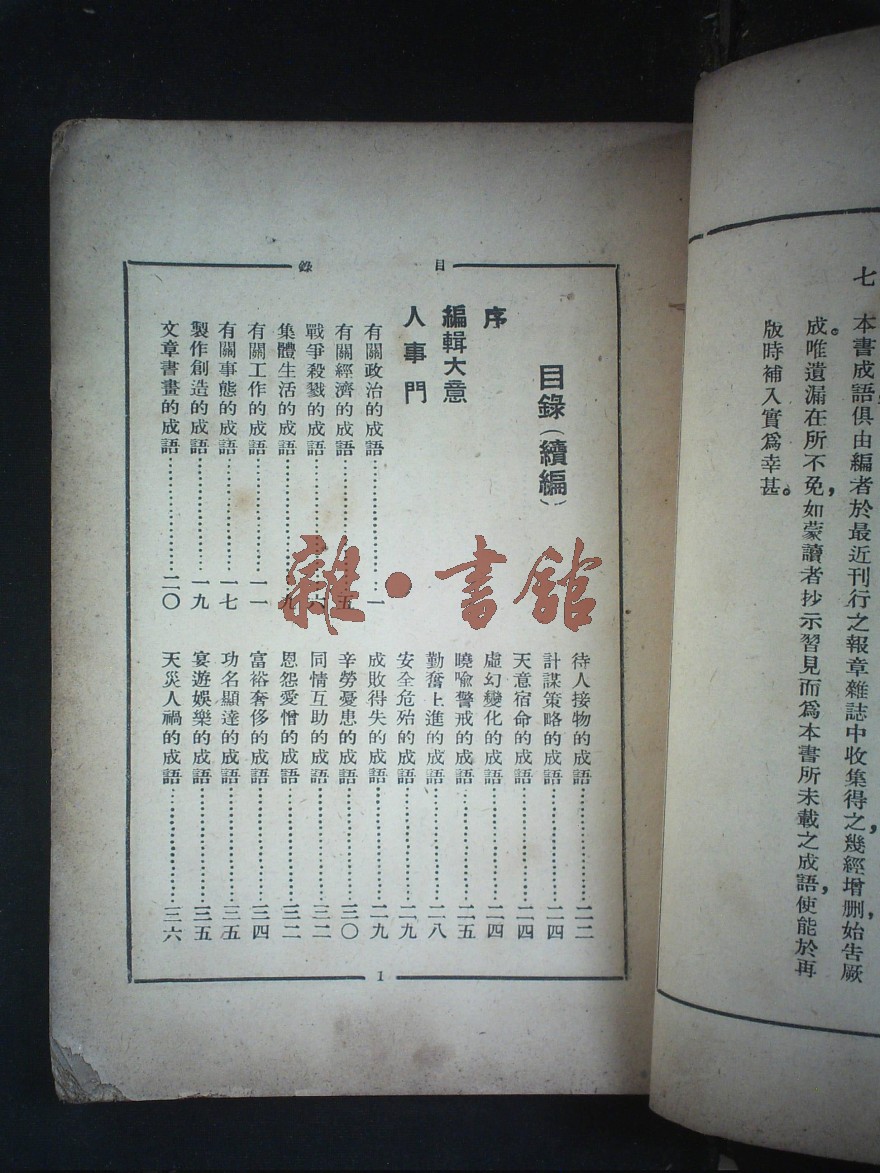 七　本書成語俱由編者於最近刊行之報章雜誌中收集得之，幾經增删，始吿厥
成。唯遺漏在所不免，如蒙讀者抄示習見而爲本書所未載之成語，使能於再
版時補入，實爲幸甚。
目錄
目錄（續編）
序
編輯大意
人事門
有關政治的成語…………一
有關經濟的成語…………五
戰爭殺戮的成語…………六
集體生活的成語…………九
有關工作的成語…………一一
有關事態的成語…………一七
製作創造的成語…………一九
文章書畫的成語…………二〇
待人接物的成語…………二二
計謀策略的成語…………二四
天意宿命的成語…………二四
虛幻變化的成語…………二四
曉喩警戒的成語…………二五
勤奮上進的成語…………二八
安全危殆的成語…………二九
成敗得失的成語…………二九
辛勞憂患的成語…………三〇
同情互助的成語…………三二
恩怨愛憎的成語…………三二
富裕奢侈的成語…………三四
功名顯達的成語…………三五
宴遊娛樂的成語…………三五
天災人禍的成語…………三六
1
雜·書館